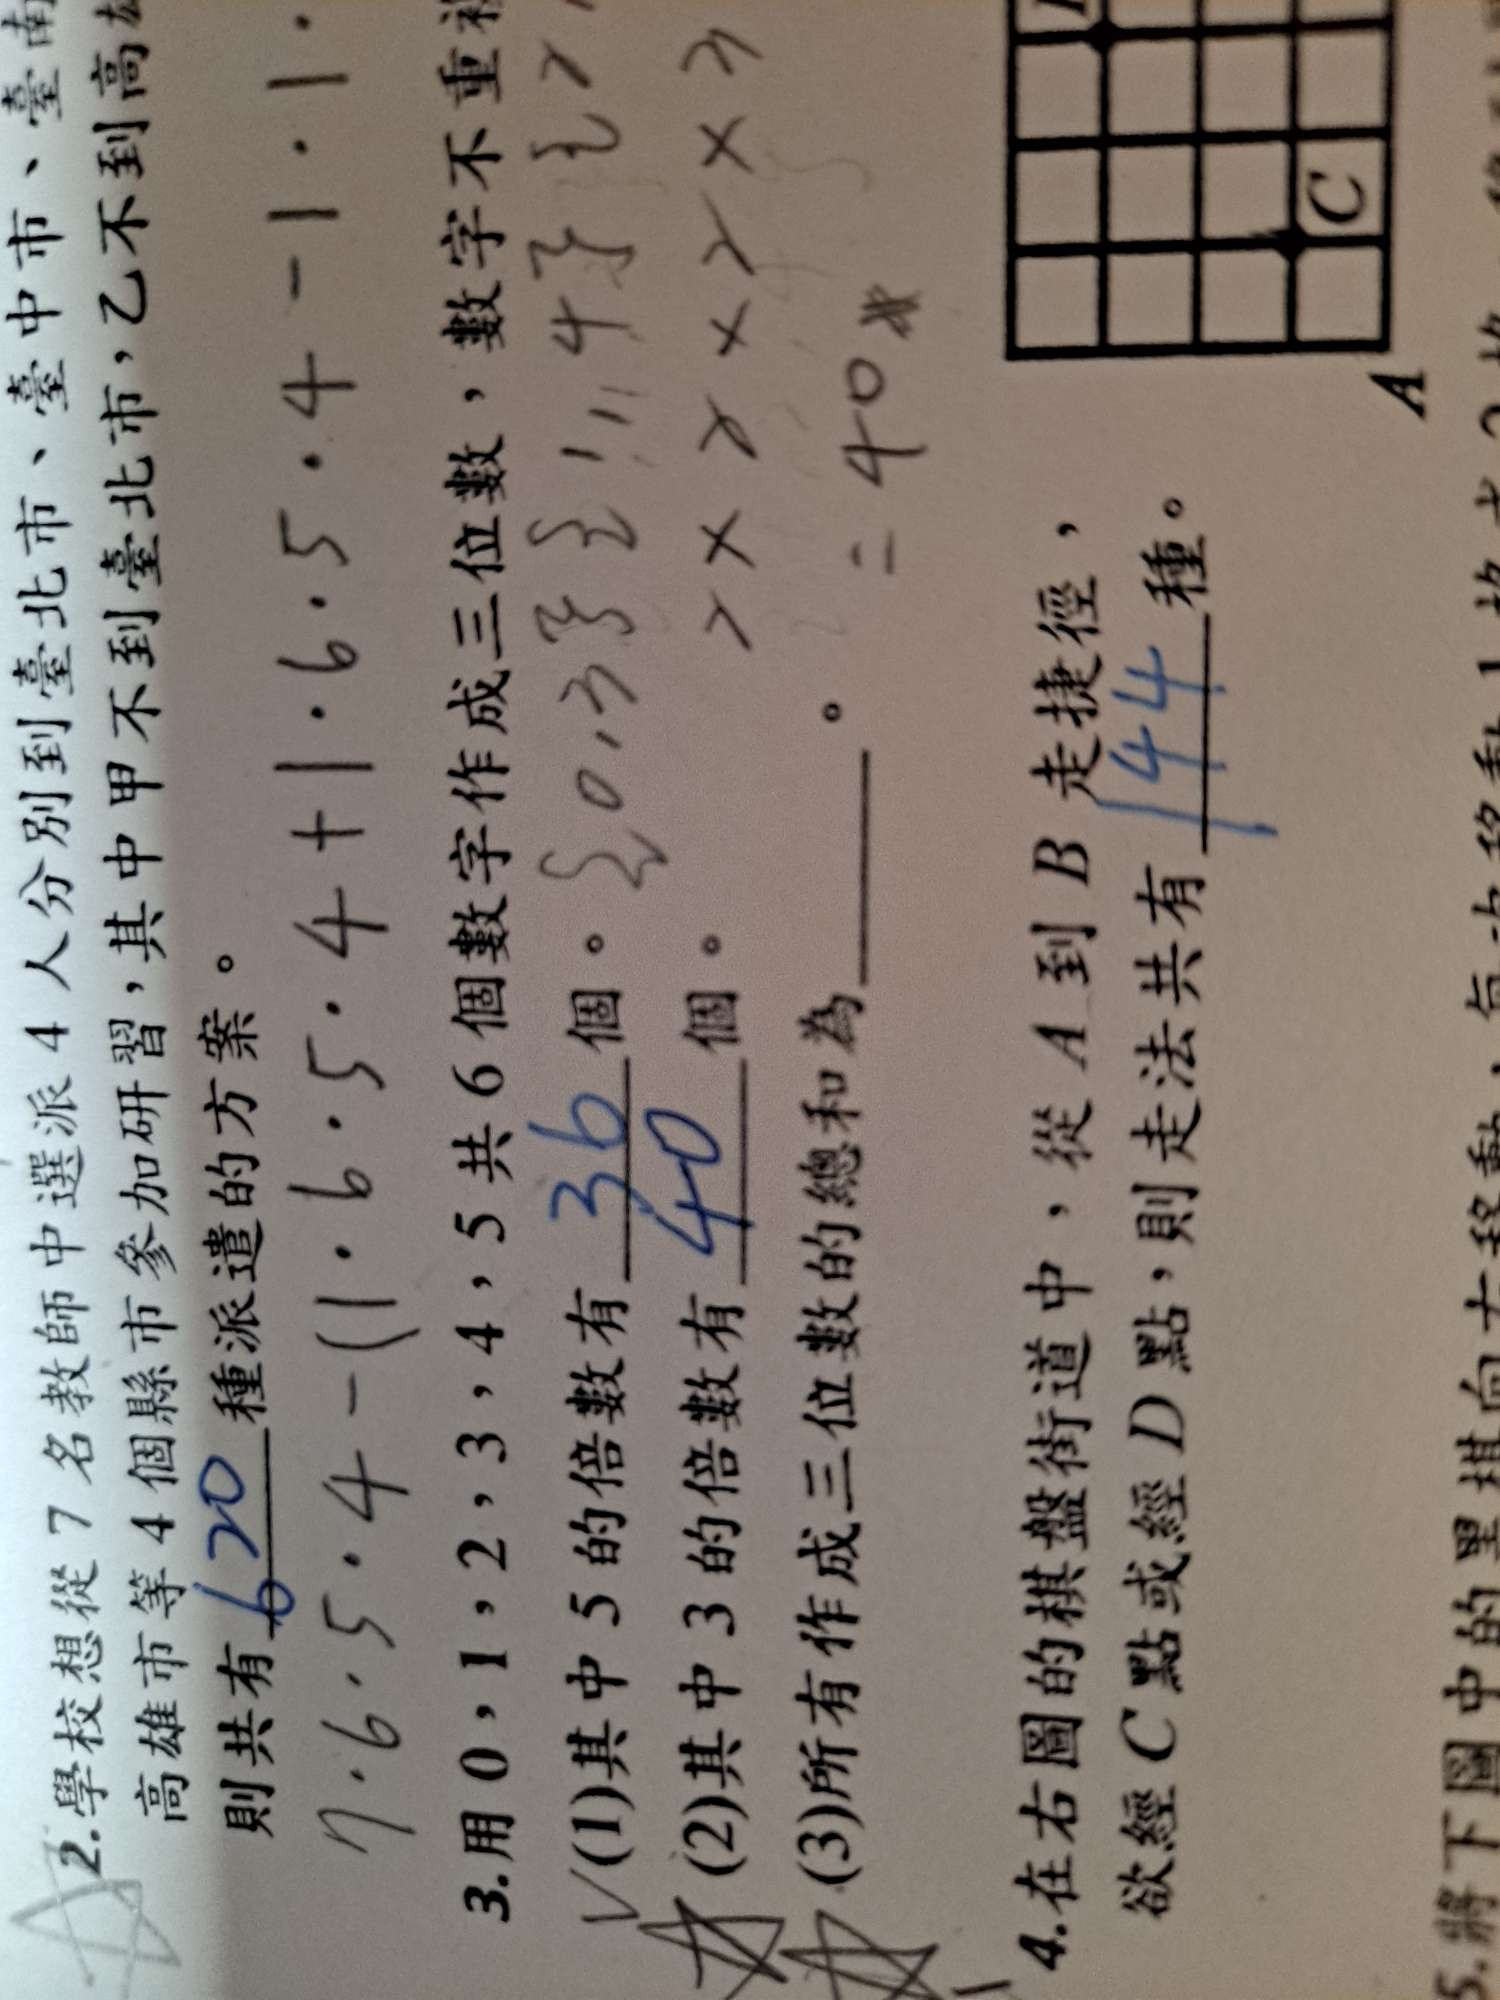 2.學校想從 7 名教師中選派 4 人分別到臺北市、臺中市、臺南
高雄市等 4 個縣市參加研習,其中甲不到臺北市,乙不到高雄
則共有 620 種派遣的方案。
7·6·5·4-(1·6·5·4+1·6·5·4-1·1·
3.用 0,1,2,3,4,5 共 6 個數字作成三位數,數字不重複
(1)其中 5 的倍數有 36 個。
(2)其中 3 的倍數有 40 個。
=40
(3)所有作成三位數的總和為____。
4.在右圖的棋盤街道中,從 A 到 B 走捷徑,
欲經 C 點或經 D 點,則走法共有 144 種。
C
A
5.將下圖中的黑棋向右移動,每次移動 1 格或 2 格